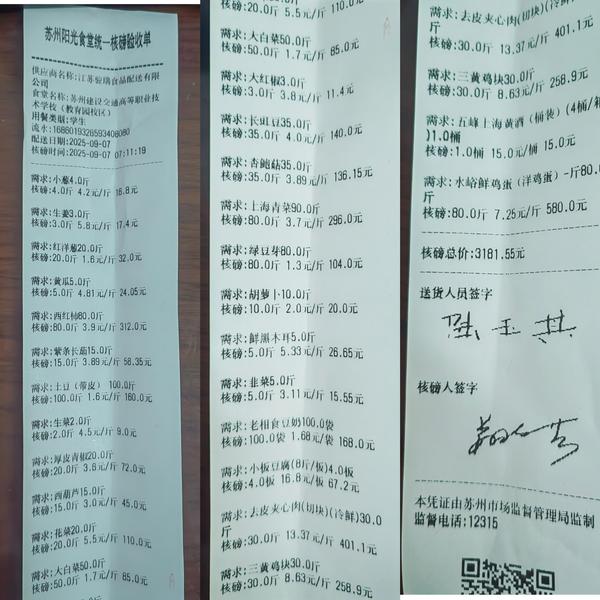 苏州阳光食堂统一核磅验收单
供应商名称:江苏骏瑞食品配送有限
公司
食堂名称:苏州建设交通高等职业技
术学校（教育园校区）
用餐类别:学生
流水:1686019328593408080
配送日期:2025-09-07
核磅时间:2025-09-07 07:11:19
需求:小葱4.0斤
核磅:4.0斤 4.2元/斤 16.8元
需求:生姜3.0斤
核磅:3.0斤 5.8元/斤 17.4元
需求:红洋葱20.0斤
核磅:20.0斤 1.6元/斤 32.0元
需求:黄瓜5.0斤
核磅:5.0斤 4.81元/斤 24.05元
需求:西红柿80.0斤
核磅:80.0斤 3.9元/斤 312.0元
需求:紫条长茄15.0斤
核磅:15.0斤 3.89元/斤 58.35元
需求:土豆（带皮） 100.0斤
核磅:100.0斤 1.6元/斤 160.0元
需求:生菜2.0斤
核磅:2.0斤 4.5元/斤 9.0元
需求:厚皮青椒20.0斤
核磅:20.0斤 3.6元/斤 72.0元
需求:西葫芦15.0斤
核磅:15.0斤 3.0元/斤 45.0元
需求:花菜20.0斤
核磅:20.0斤 5.5元/斤 110.0元
需求:大白菜50.0斤
核磅:50.0斤 1.7元/斤 85.0元
核磅:20.0斤 5.5元/斤 110.0元
需求:大白菜50.0斤
核磅:50.0斤 1.7元/斤 85.0元
需求:大红椒3.0斤
核磅:3.0斤 3.8元/斤 11.4元
需求:长豇豆35.0斤
核磅:35.0斤 4.0元/斤 140.0元
需求:杏鲍菇35.0斤
核磅:35.0斤 3.89元/斤 136.15元
需求:上海青菜90.0斤
核磅:80.0斤 3.7元/斤 296.0元
需求:绿豆芽80.0斤
核磅:80.0斤 1.3元/斤 104.0元
需求:胡萝卜10.0斤
核磅:10.0斤 2.0元/斤 20.0元
需求:鲜黑木耳5.0斤
核磅:5.0斤 5.33元/斤 26.65元
需求:韭菜5.0斤
核磅:5.0斤 3.11元/斤 15.55元
需求:老相食豆奶100.0袋
核磅:100.0袋 1.68元/袋 168.0元
需求:小板豆腐(8斤/板)4.0板
核磅:4.0板 16.8元/板 67.2元
需求:去皮夹心肉(切块)(冷鲜)30.0
斤
核磅:30.0斤 13.37元/斤 401.1元
需求:三黄鸡块30.0斤
核磅:30.0斤 8.63元/斤 258.9元
需求:去皮夹心肉(切块)(冷鲜)
斤
核磅:30.0斤 13.37元/斤 401.1元
需求:三黄鸡块30.0斤
核磅:30.0斤 8.63元/斤 258.9元
需求:五峰上海黄酒（桶装）(4桶/箱
)1.0桶
核磅:1.0桶 15.0元/桶 15.0元
需求:水峪鲜鸡蛋（洋鸡蛋）-斤80.0
斤
核磅:80.0斤 7.25元/斤 580.0元
核磅总价:3181.55元
送货人员签字
核磅人签字
本凭证由苏州市场监督管理局监制
监督电话:12315